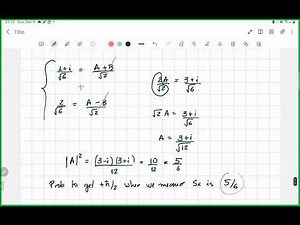 Title
(1+i)/√6 = (A+B)/√2
+
2/√6 = (A-B)/√2
2A/√2 = (3+i)/√6
√2 A = (3+i)/√6
A = (3+i)/√12
|A|² = (3-i)(3+i)/12 = 10/12 = 5/6
Prob to get +ħ/2 when we measure Sx is 5/6